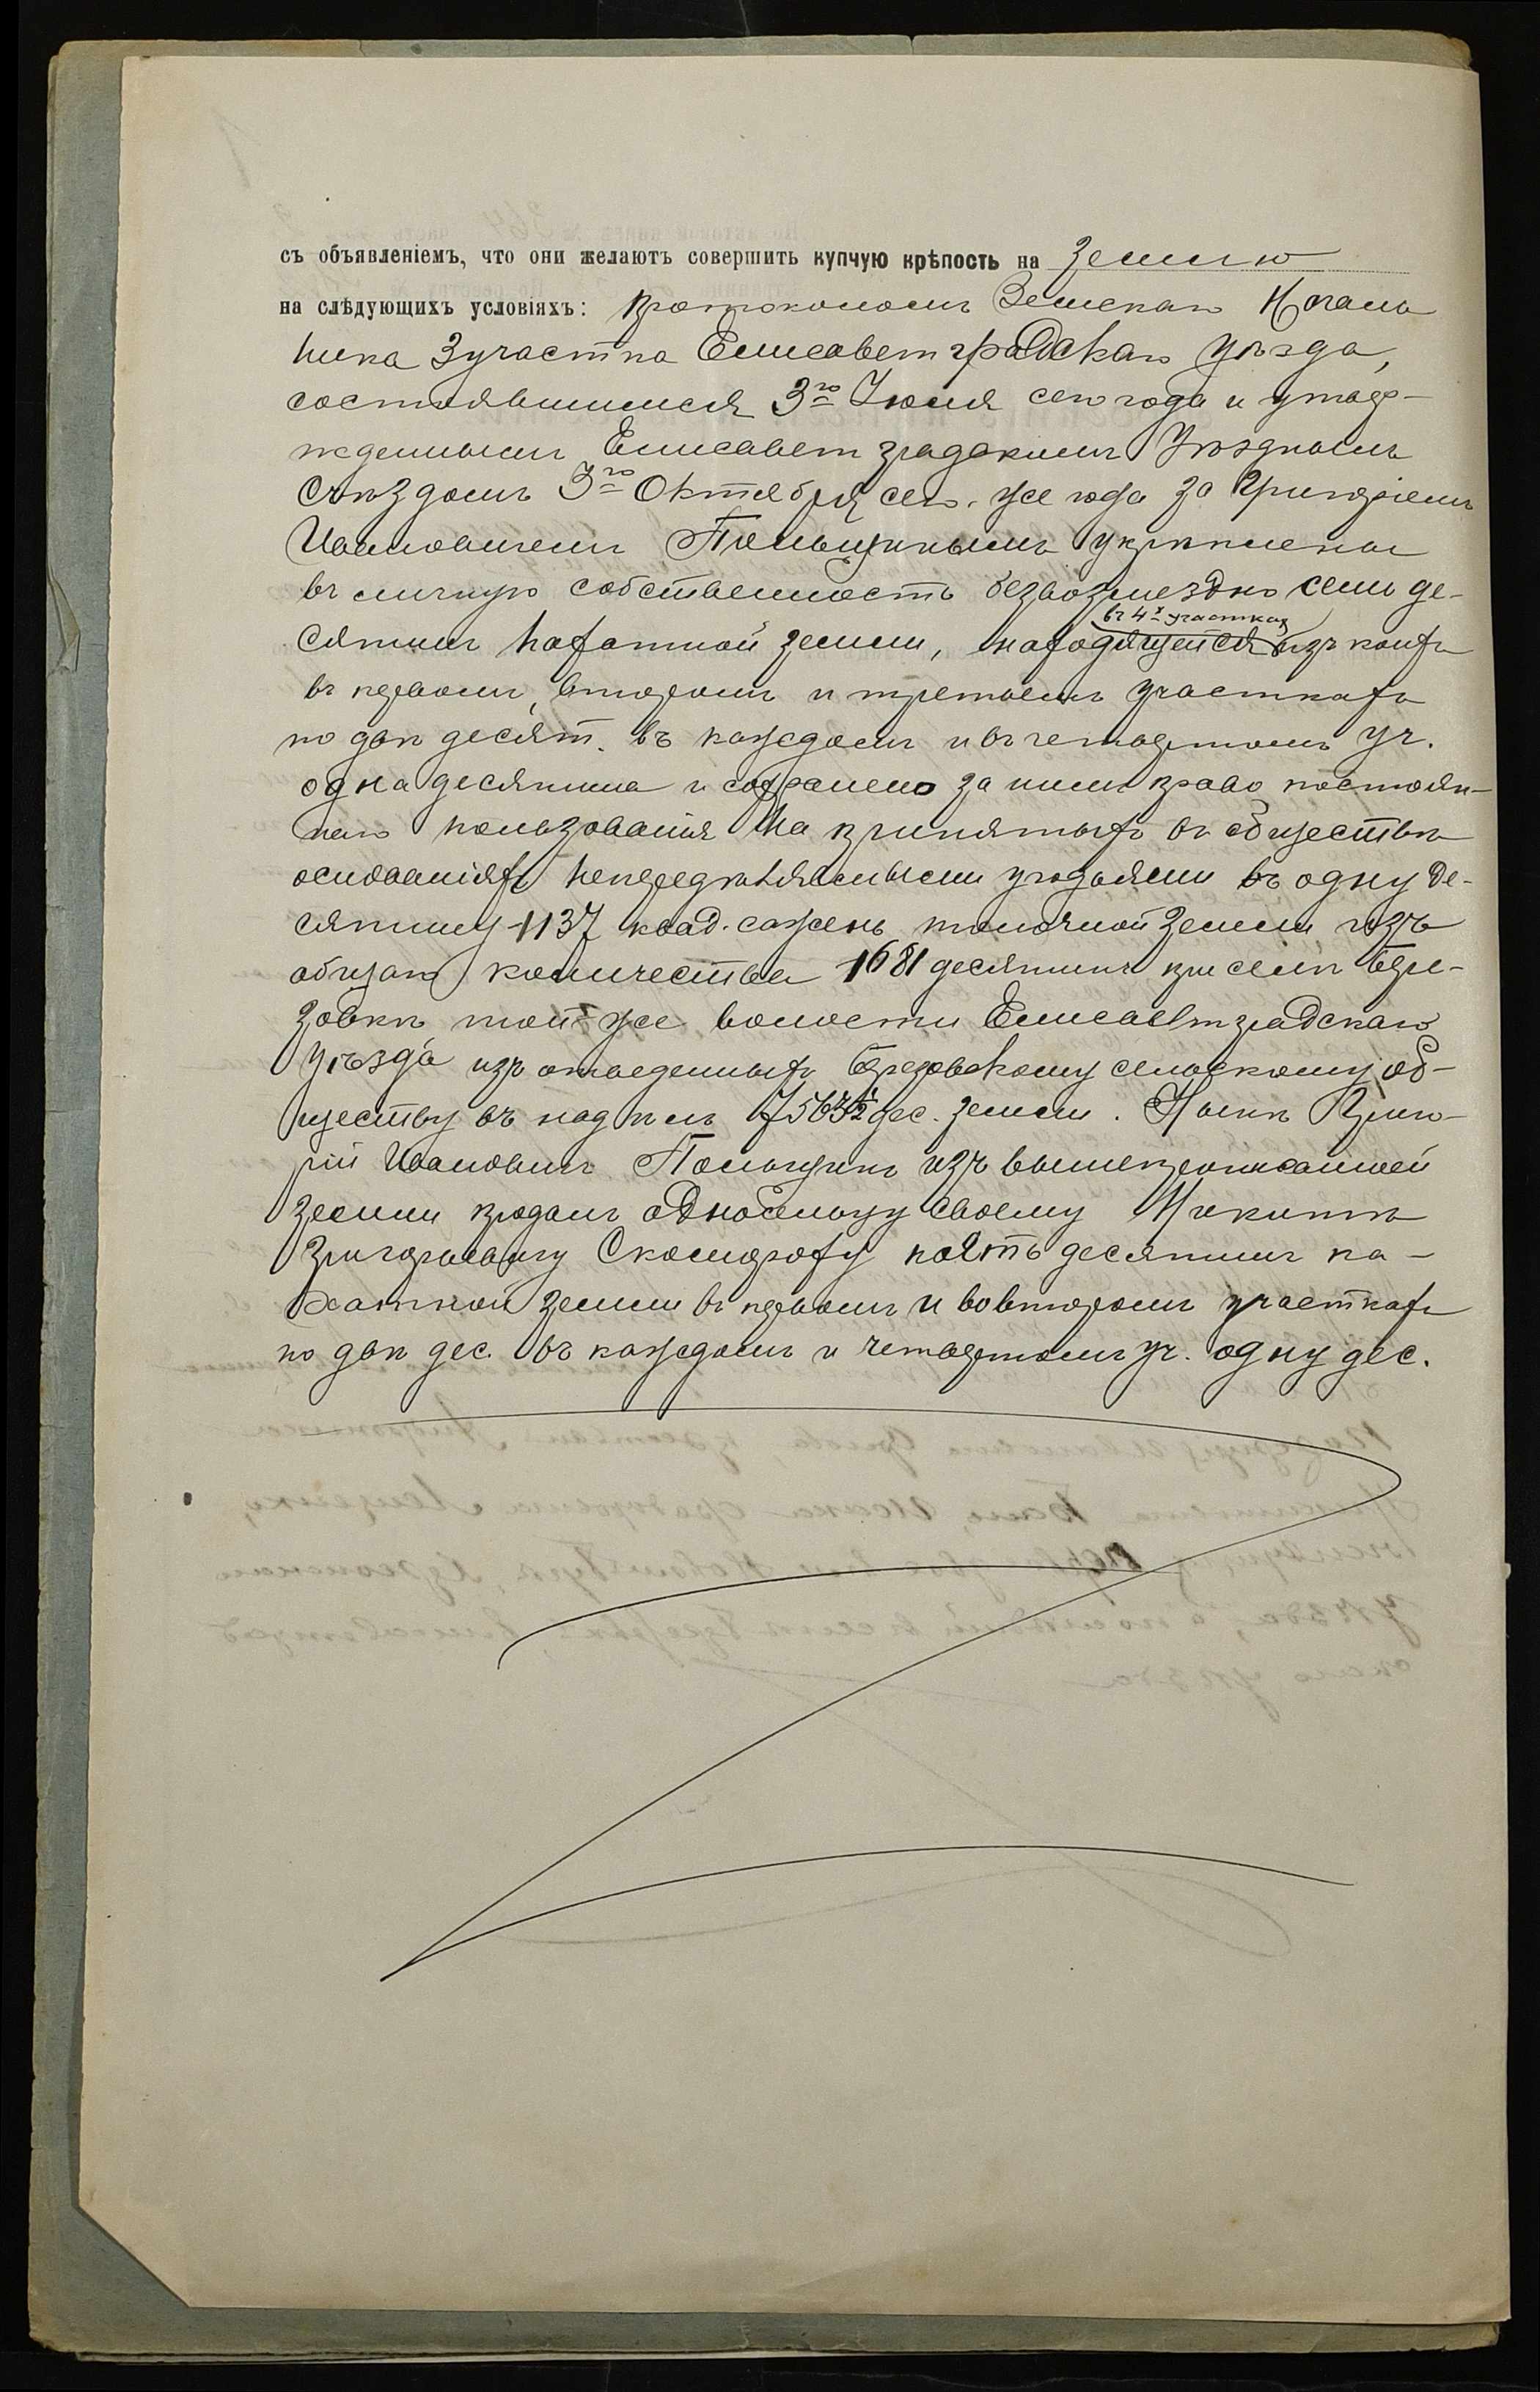 съ объявленіемъ, что они желаютъ совершить купчую крѣпость на землю
на слѣдующихъ условіяхъ: протоколомъ Земскаго Началь
ника 3 участка Елисаветградскаго уѣзда,
состоявшимся 3го Іюля сего года и утвер-
жденнымъ Елисаветградскимъ Уѣзднымъ
Съѣздомъ 3го Октября сего же года за Григоріемъ
Ивановичемъ укрѣплены
въ личную собственность безвозмездно семь де-
въ 4х участках
сятинъ пахатной земли, находящейся изъ коихъ
въ первомъ, второмъ и третьемъ участкахъ
по двѣ десят. въ каждомъ и въ четвертомъ уч.
одна десятина и сохранено за нимъ право постоян-
наго пользованія на принятыхъ въ обществѣ
основаніяхъ непередѣляемыми угодьями въ одну де-
сятину 1137 квад. сажень толочной земли изъ
общаго количества 1681 десятинъ при селѣ Бре-
зовкѣ той-же волости Елисаветградскаго
уѣзда изъ отведенныхъ Брезовскому сельскому об-
ществу въ надѣлъ 7563½ дес. земли. Нынѣ Григо-
рій Ивановичъ изъ вышепрописанной
земли продалъ односельцу своему Никитѣ
Григорьевичу Скомороху пять десятинъ па-
хатной земли въ первомъ и во второмъ участкахъ
по двѣ дес. въ каждомъ и четвертомъ уч. одну дес.